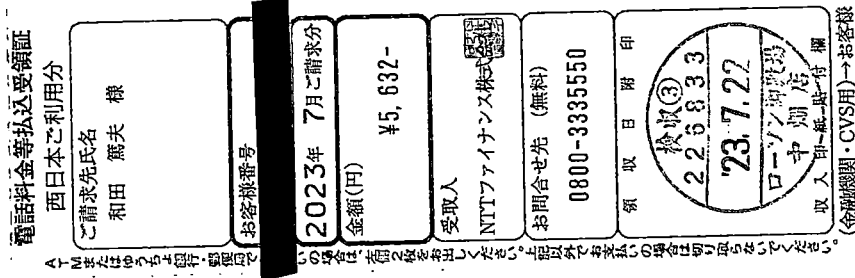 電話料金等払込受領証
西日本ご利用分
ご請求先氏名
和田 篤夫 様
お客様番号
2023年 7月ご請求分
金額(円)
¥5,632-
受取人
NTTファイナンス株式会社
お問合せ先 (無料)
0800-3335550
領収日附印
検収③
226833
'23.7.22
ローソン
中 店
収入印紙貼付欄
(金融機関・CVS用)→お客様
ATMまたはゆうちょ銀行・郵便局で
いの場合は、左側2枚を提出してください。上記以外でお支払いの場合は切り取らないでください。